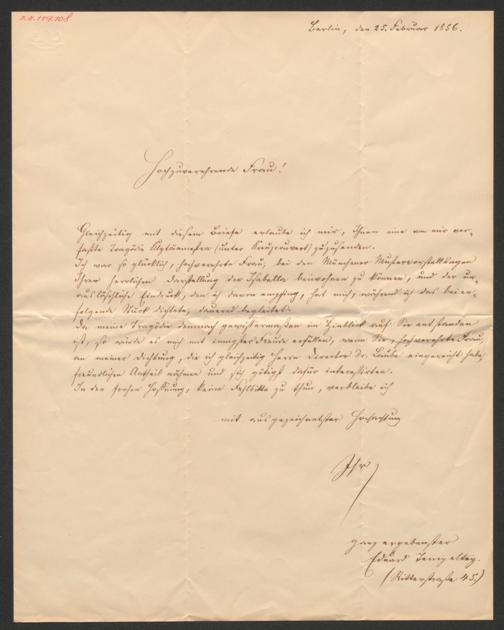 Berlin, den 25. Februar 1856.
Hochzuverehrende Frau!
Gleichzeitig mit diesem Briefe erlaube ich mir, Ihnen eine von mir ver-
faßte Tragödie Klytämnestra (unter Kreuzcouvert) zuzusenden.
Ich war so glücklich, hochverehrte Frau, bei den Münchener Mustervorstellungen
Ihrer herrlichen Darstellung der Isabella beiwohnen zu können, und der un-
auslöschliche Eindruck, den ich davon empfing, hat mich, während ich das beier-
folgende Stück dichtete, dauernd begleitet.
Da meine Tragödie demnach gewissermaßen im Hinblick auf Sie entstanden
ist, so würde es mich mit innigster Freude erfüllen, wenn Sie, hochverehrte Frau,
an meiner Dichtung, die ich gleichzeitig Herrn Director Dr. Laube eingereicht habe,
freundlichen Antheil nähmen und sich gütigst dafür interessirten.
In der frohen Hoffnung, keine Fehlbitte zu thun, verbleibe ich
mit ausgezeichnetster Hochachtung
Ihr
ganz ergebenster
Eduard Tempeltey.
(Ritterstraße 45.)